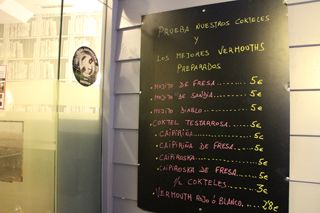 PRUEBA NUESTROS COKTELES
Y
LOS MEJORES VERMOOTHS
PREPARADOS
• MOJITO DE FRESA.........5€
• MOJITO DE SANDIA........5€
• MOJITO DIABLO...........5€
• COKTEL TESTARROSA.......5€
• CAIPIRIÑA...............5€
• CAIPIRIÑA DE FRESA......5€
• CAIPIROSKA..............5€
• CAIPIROSKA DE FRESA.....5€
1/2 COKTELES......3€
• VERMOUTH ROJO Ó BLANCO..2'8€